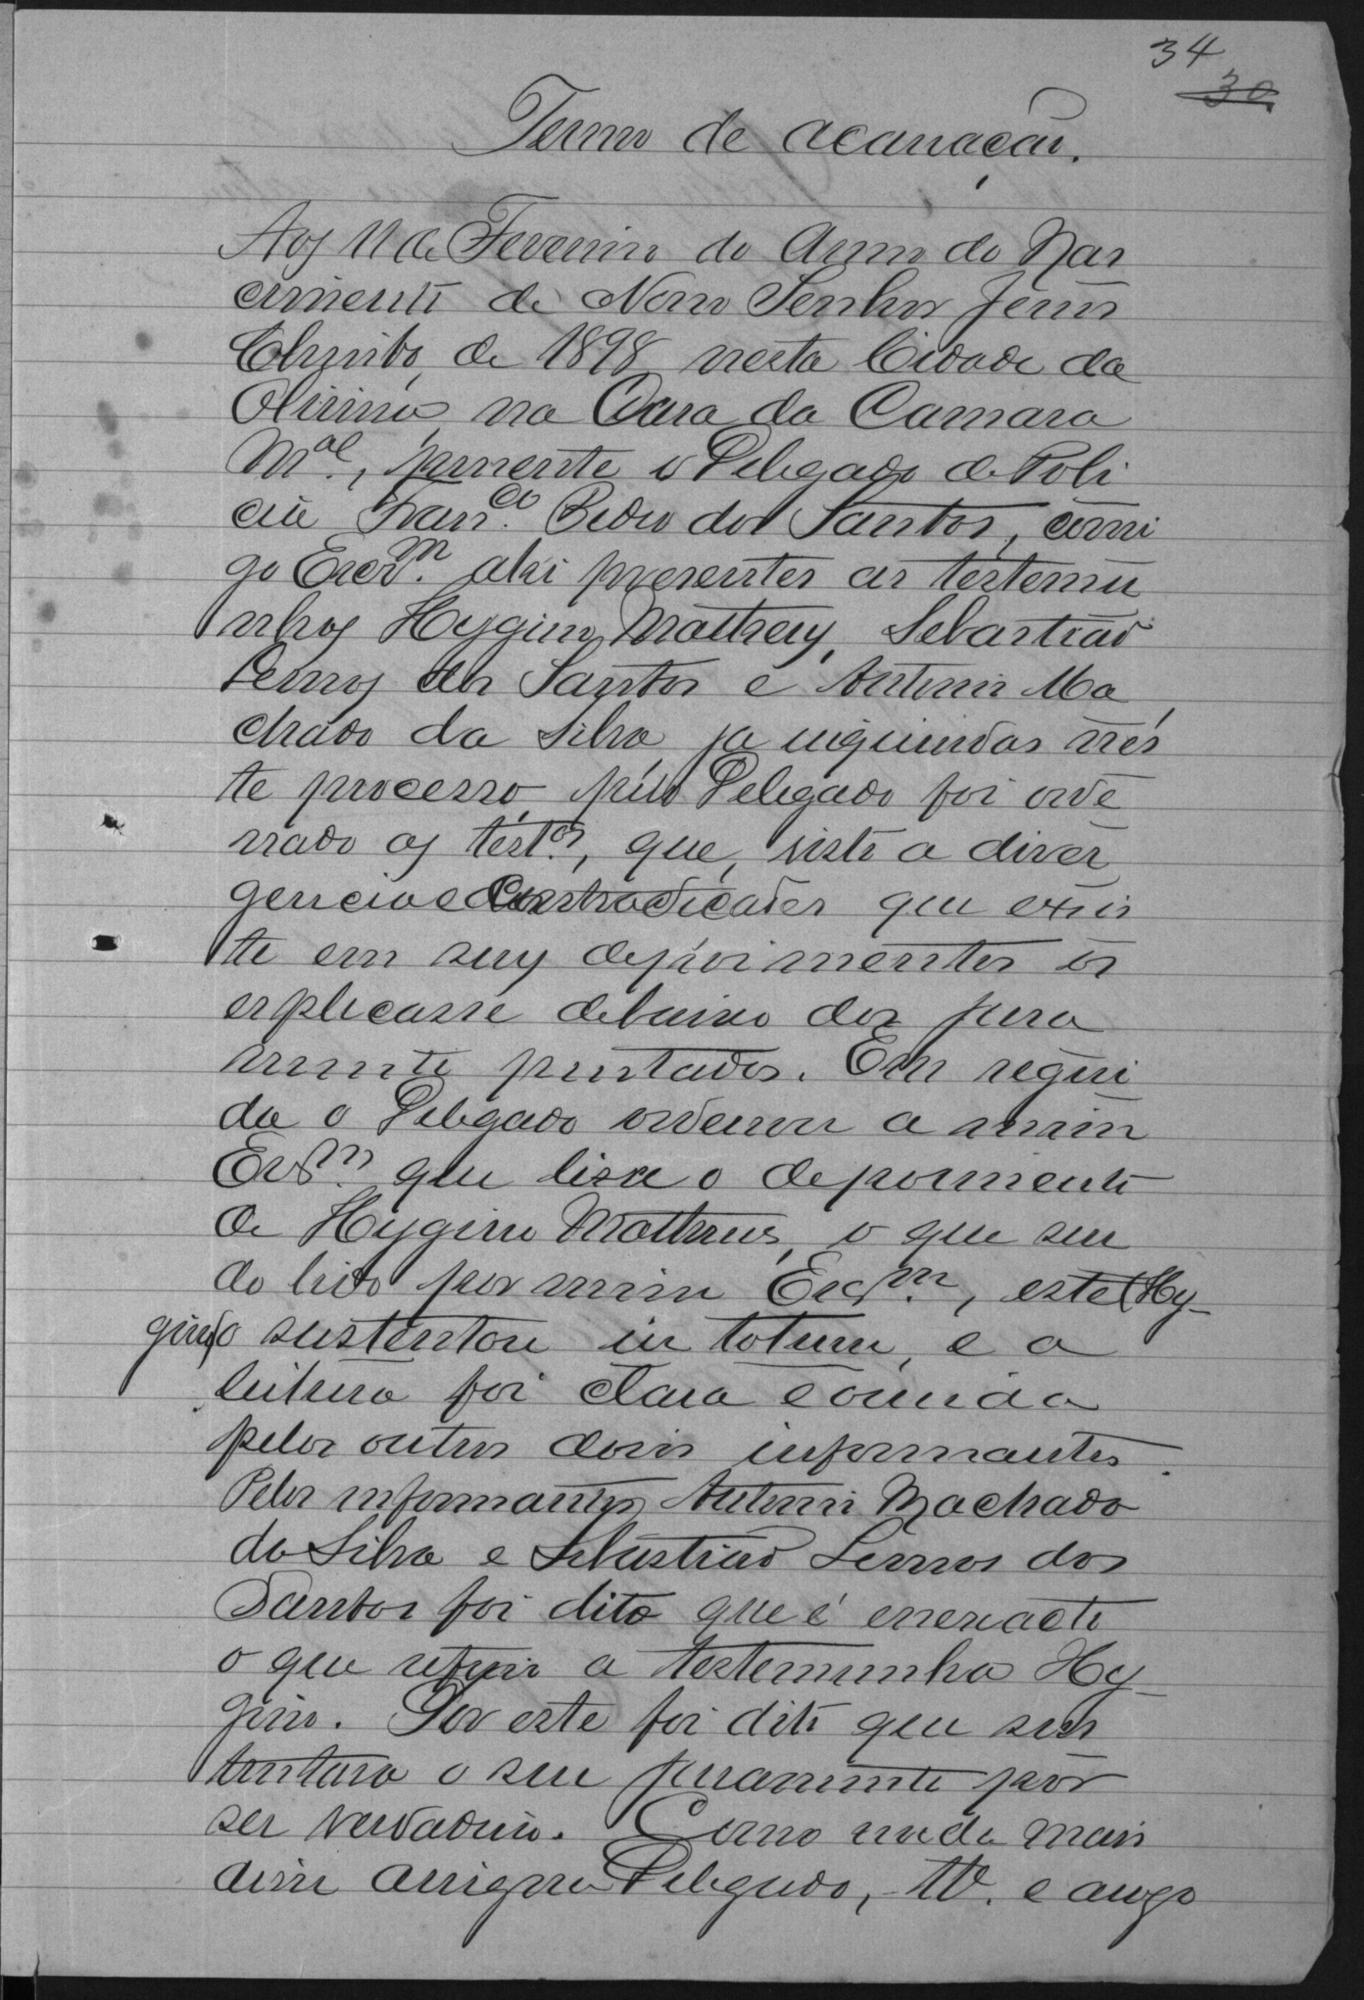 34
30
Termo de acariação.
Aos 11 de Fevereiro do Anno do Nas
cimento de Nosso Senhor Jesus
Christo, de 1898 nesta Cidade da
na Casa da Camara
Mal., presente o Delegado de Poli
cia Franco. Pedro dos Santos, commi
go Escrm. ahi presentes as testemu
nhas Hygino Matheus, Sebastião
Lemos dos Santos e Antonio Ma
chado da Silva ja inqueridas nés
te processo, pelo Delegado foi orde
nado as testas, que, visto a diver
gencia e contradicções que exis
te em seus depoimentos os
explicasse debaixo dos jura
mento prestados. Em segui
da o Delegado ordenou a mim
Escrm. que lisse o depoimento
de Hygino Matheus, o que sen
do lido por mim Escrm., este (Hy-
gino) o sustentou in totum, e a
leitura foi clara e ouvida
pelos outros dois informantes.
Pelos informantes Antonio Machado
da Silva e Sebastião Lemos dos
Santos foi dito que é enexacto
o que refere a testemunha Hy-
gino. Por este foi dito que sus
tentava o seu juramento por
ser verdadeiro. Como nada mais
disse assigna o Delegado, e a rogo